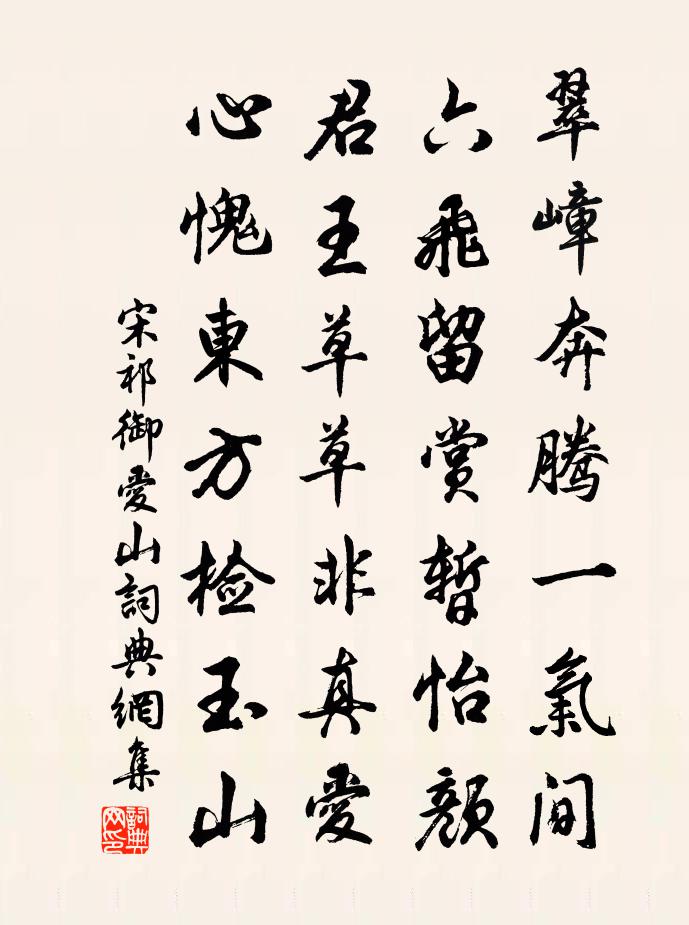 翠嶂奔騰一氣间
六飛留賞暫怡顏
君王草草非真愛
心愧東方檢玉山
宋祁御愛山詞典網集
詞典网印